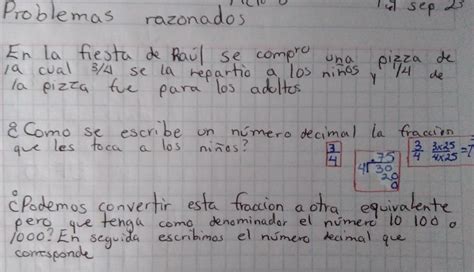 Problemas razonados
sep 23
En la fiesta de Raúl se compro una pizza de
la cual 3/4 se la repartio a los niños y 1/4 de
la pizza fue para los adultos
¿Como se escribe un número decimal la fraccion
que les toca a los niños?
3/4
.75
4 30
20
0
3/4 3x25/4x25 =7
¿Podemos convertir esta fraccion a otra equivalente
pero que tenga como denominador el número 10 100 o
1000? En seguida escribimos el número decimal que
corresponde